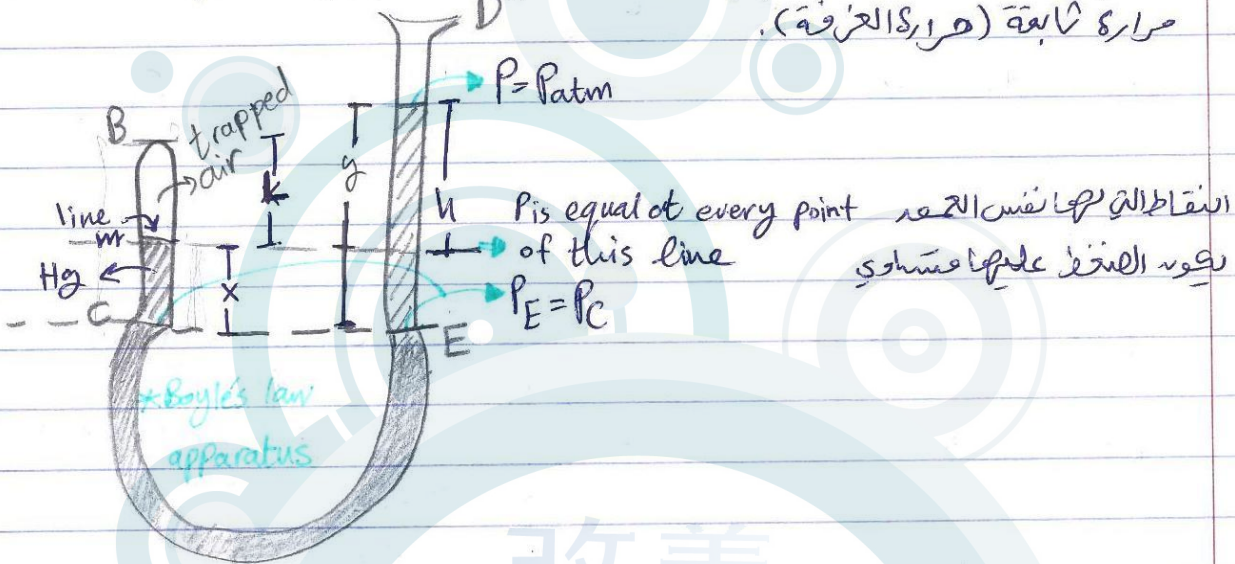 حرارة ثابتة (حرارة الغرفة).
D
P=Patm
B
trapped
air
k
y
h
line
m
Hg
x
C
P is equal at every point
of this line
النقاط التي لها نفس العمق
يكون الضغط عليها متساوي
PE=PC
E
*Boyle's law
apparatus
改善